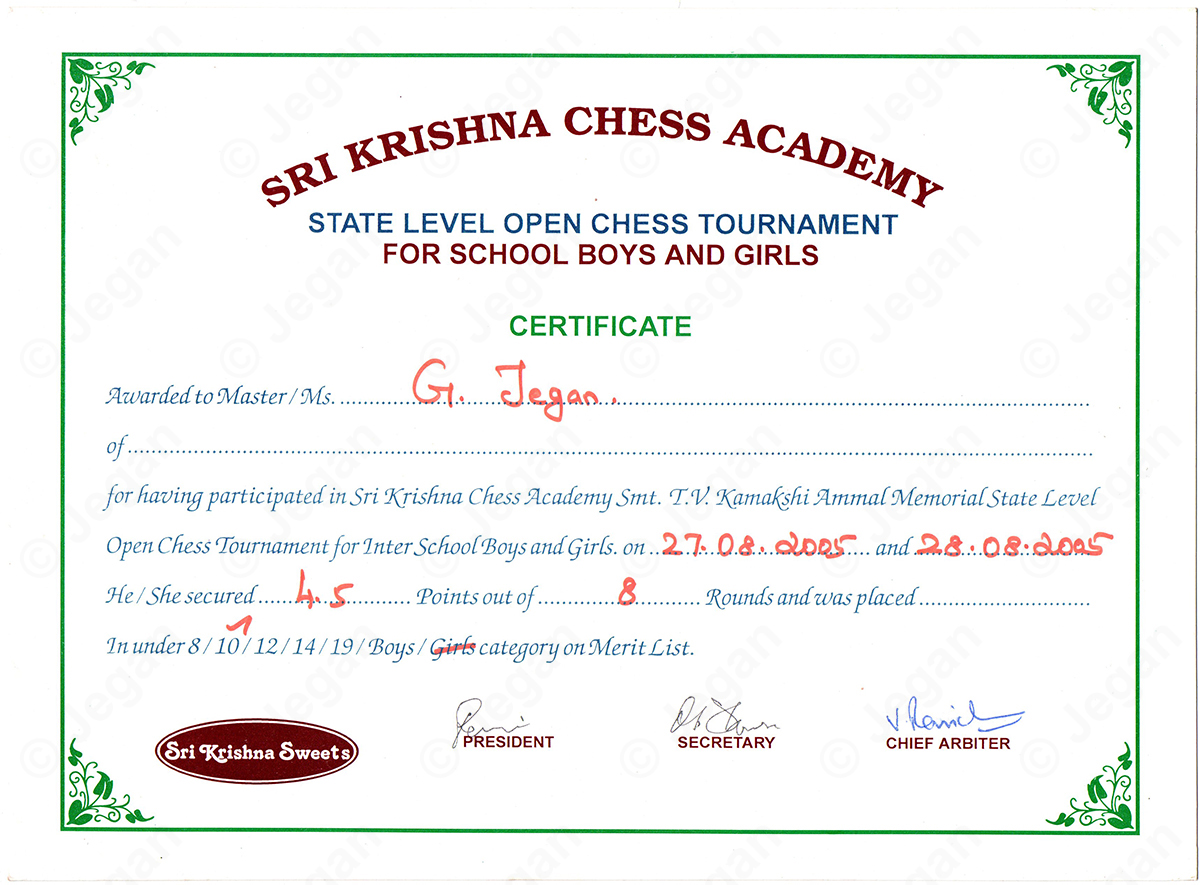 SRI KRISHNA CHESS ACADEMY
STATE LEVEL OPEN CHESS TOURNAMENT
FOR SCHOOL BOYS AND GIRLS
CERTIFICATE
Awarded to Master / Ms. G. Jegan.
of
for having participated in Sri Krishna Chess Academy Smt. T.V. Kamakshi Ammal Memorial State Level
Open Chess Tournament for Inter School Boys and Girls. on 27.08.2005 and 28.08.2005
He / She secured 4.5 Points out of 8 Rounds and was placed
In under 8 / 10 / 12 / 14 / 19 / Boys / Girls category on Merit List.
Sri Krishna Sweets
PRESIDENT
SECRETARY
CHIEF ARBITER
© Jegan